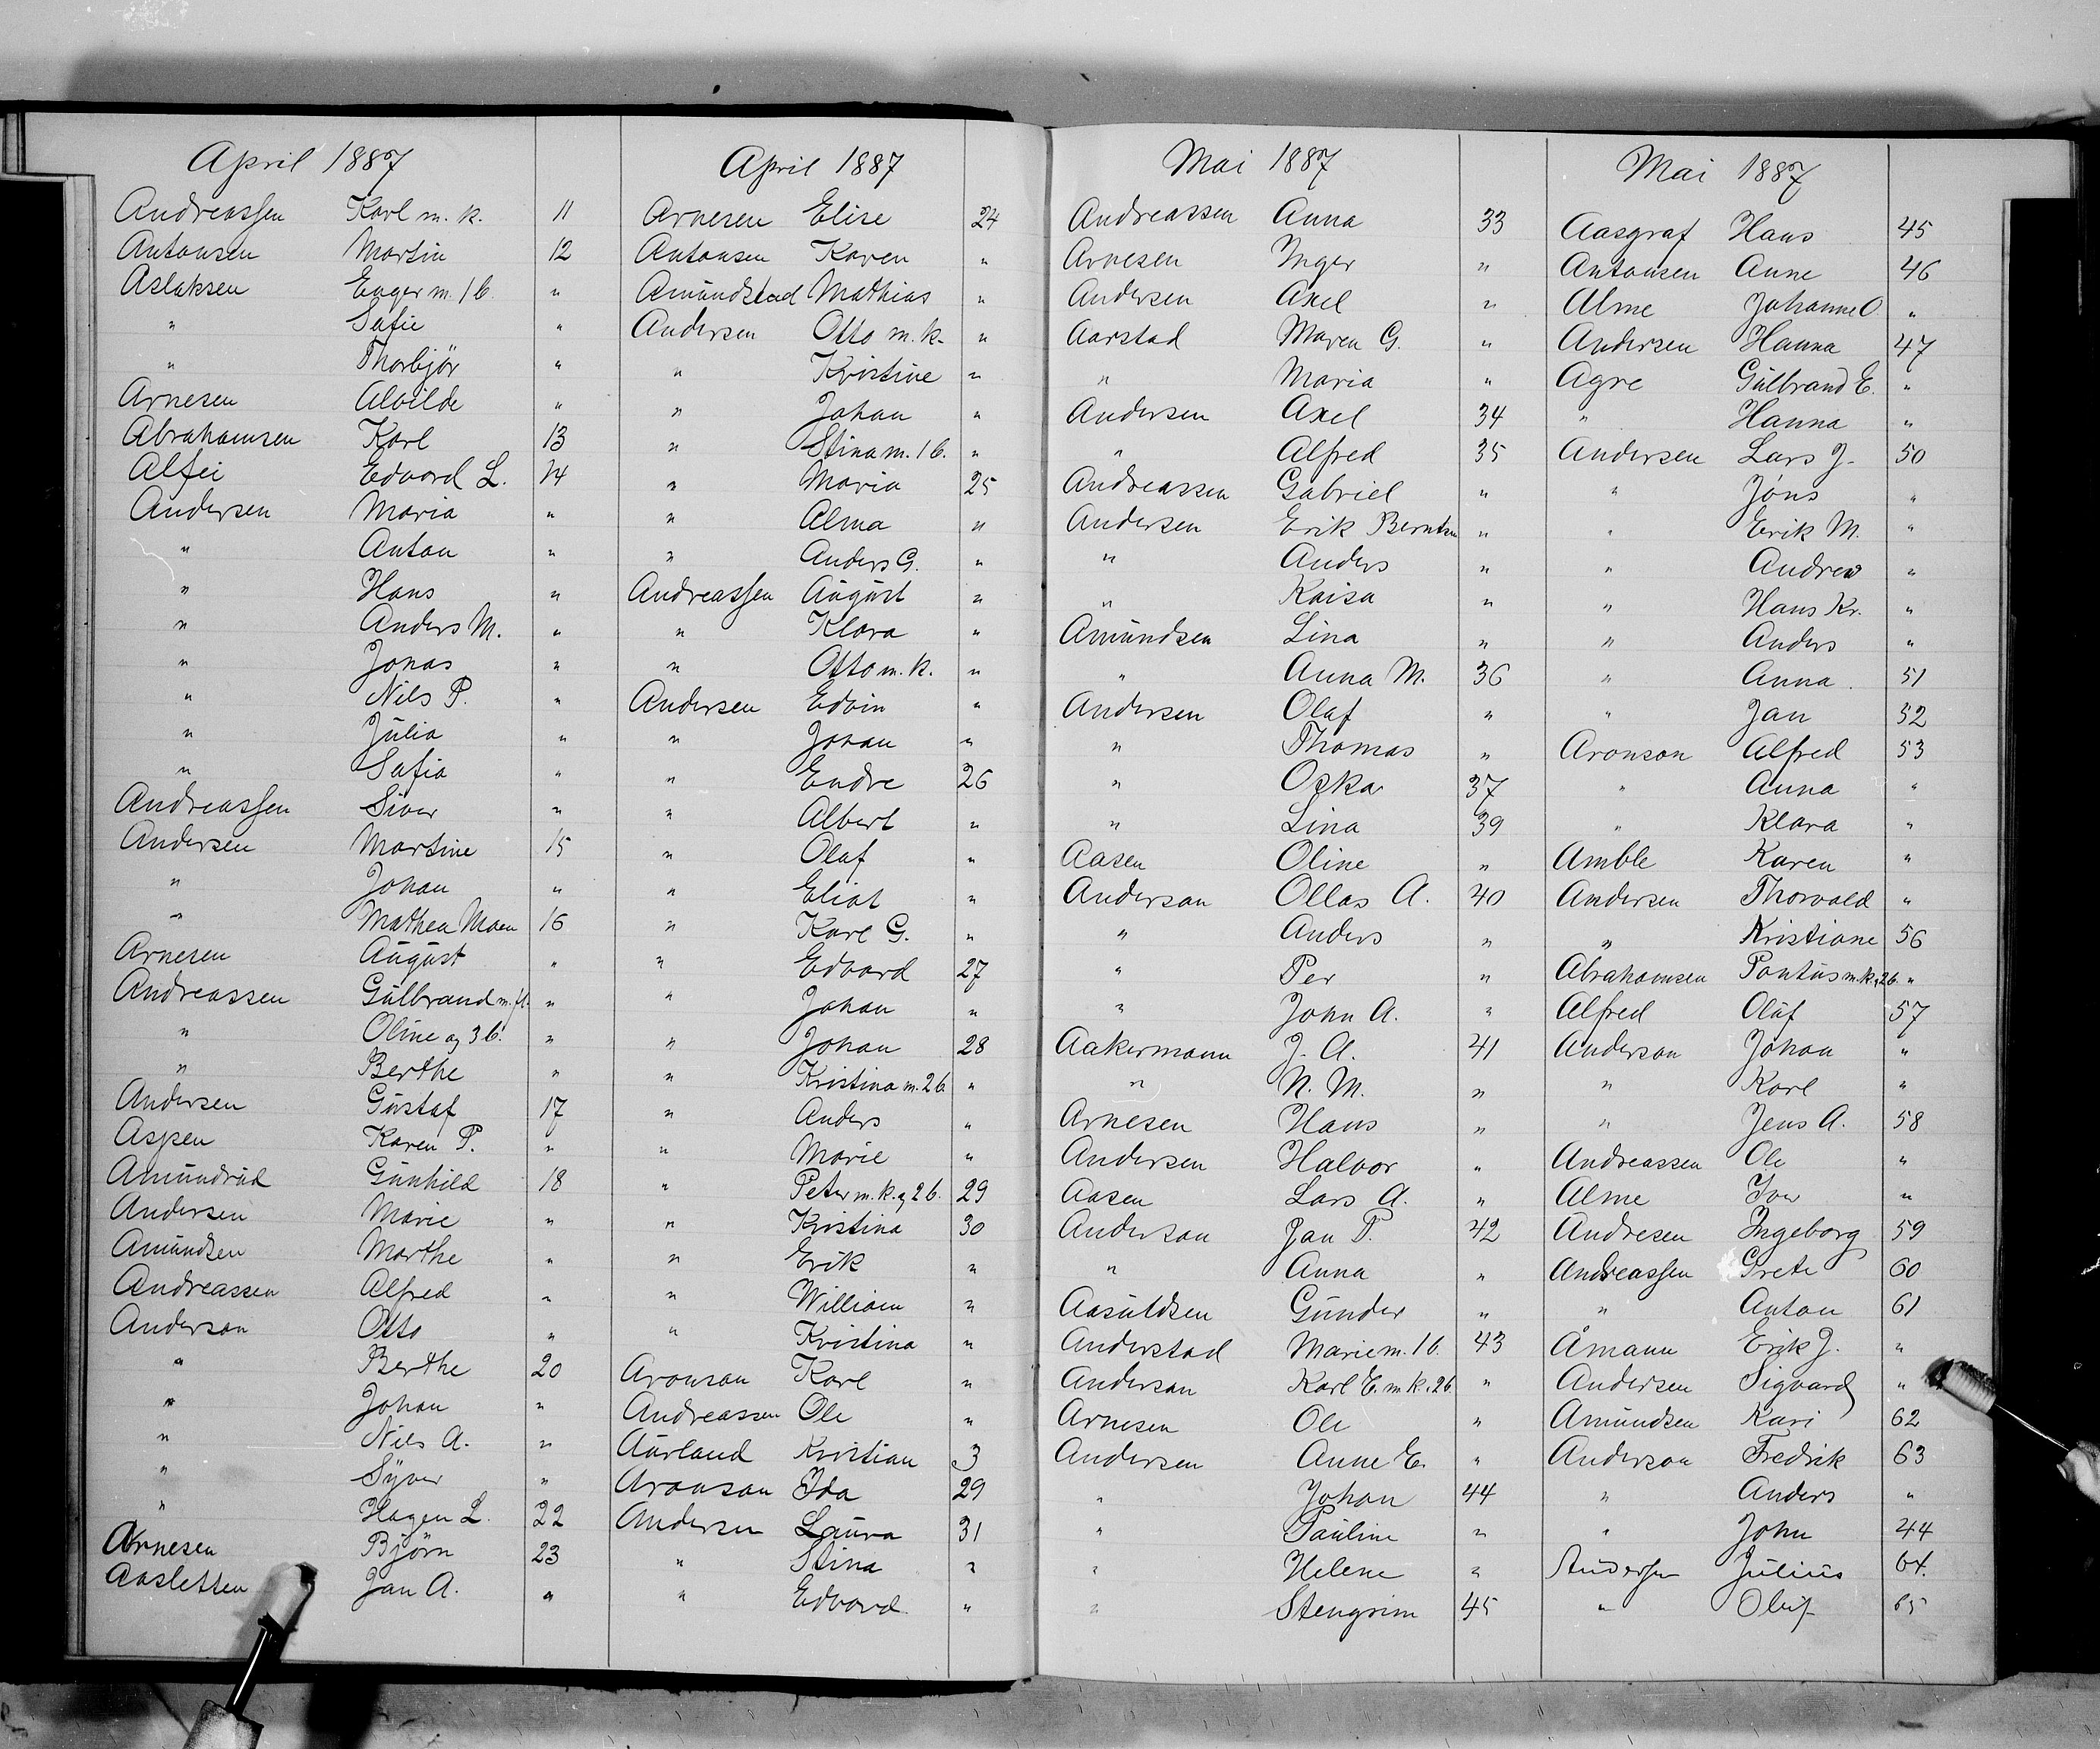 April 1887
Andreassen Karl m. k. 11
Antonsen Martin 12
Aslaksen Enger m. 1 b. "
" Safie "
" Thorbjör "
Arnesen Alvilde "
Abrahamsen Karl 13
Alfei Edvard L. 14
Andersen Maria "
" Anton "
" Hans "
" Anders M. "
" Jonas "
" Nils P. "
" Julia "
" Safia "
Andreassen Siver "
Andersen Martine 15
" Johan "
" Mathea Moen 16
Arnesen August "
Andreassen Gulbrand m. fl. "
" Oline og 3 b. "
" Berthe "
Andersen Gustaf 17
Aspen Karen P. "
Amundrud Gunhild 18
Andersen Marie "
Amundsen Marthe "
Andreassen Alfred "
Anderson Otto "
" Berthe 20
" Johan "
" Nils A. "
" Syver "
" Hagen L. 22
Arnesen Björn 23
Aasletten Jan A. "
April 1887
Arnesen Elise 24
Antonsen Karen "
Amundstad Mathias "
Andersen Otto m. k. "
" Kristine "
" Johan "
" Stina m. 1 b. "
" Maria 25
" Alma "
" Anders G. "
Andreassen August "
" Klara "
" Otto m. k. "
Andersen Edvin "
" Johan "
" Endre 26
" Albert "
" Olaf "
" Eliot "
" Karl G. "
" Edvard 27
" Johan "
" Johan 28
" Kristina m. 2 b. "
" Anders "
" Marie "
" Peter m. k. og 2 b. 29
" Kristina 30
" Erik "
" William "
" Kristina "
Aronson Karl "
Andreassen Ole "
Aurland Kristian 3
Aronson Ida 29
Andersen Laura 31
" Stina "
" Edvard "
Mai 1887
Andreassen Anna 33
Arnesen Inger "
Andersen Axel "
Aarstad Maren G. "
" Maria "
Andersen Axel 34
" Alfred 35
Andreassen Gabriel "
Andersen Erik Berntsen "
" Anders "
" Kaisa "
Amundsen Lina "
" Anna M. 36
Andersen Olaf "
" Thomas "
" Oskar 37
" Lina 39
Aasen Oline "
Anderson Ollas A. 40
" Anders "
" Per "
" John A. "
Aakermann J. A. 41
" N. M. "
Arnesen Hans "
Andersen Halvor "
Aasen Lars A. "
Anderson Jan P. 42
" Anna "
Aasuldsen Gunder "
Anderstad Marie m. 1 b. 43
Anderson Karl E. m. k. 2 b. "
Arnesen Ole "
Andersen Anne E. "
" Johan 44
" Pauline "
" Helene "
" Stengrim 45
Mai 1887
Aasgraf Hans 45
Antonsen Anne 46
Alme Johanne O. "
Andersen Hanna 47
Agre Gulbrand E. "
" Hanna "
Andersen Lars J. 50
" Jöns "
" Erik M. "
" Andrew "
" Hans Kr. "
" Anders "
" Anna 51
" Jan 52
Aronson Alfred 53
" Anna "
" Klara "
Amble Karen "
Andersen Thorvald "
" Kristiane 56
Abrahamsen Pontus m. k. 2 b. "
Alfred Oluf 57
Anderson Johan "
" Karl "
" Jens A. 58
Andreassen Ole "
Alme Iver "
Andresen Ingeborg 59
Andreassen Grete 60
" Anton 61
Åmann Erik J. "
Andersen Sigvard "
Amundsen Kari 62
Anderson Fredrik 63
" Anders "
" John 44
Andersen Julius 64.
" Oluf 65